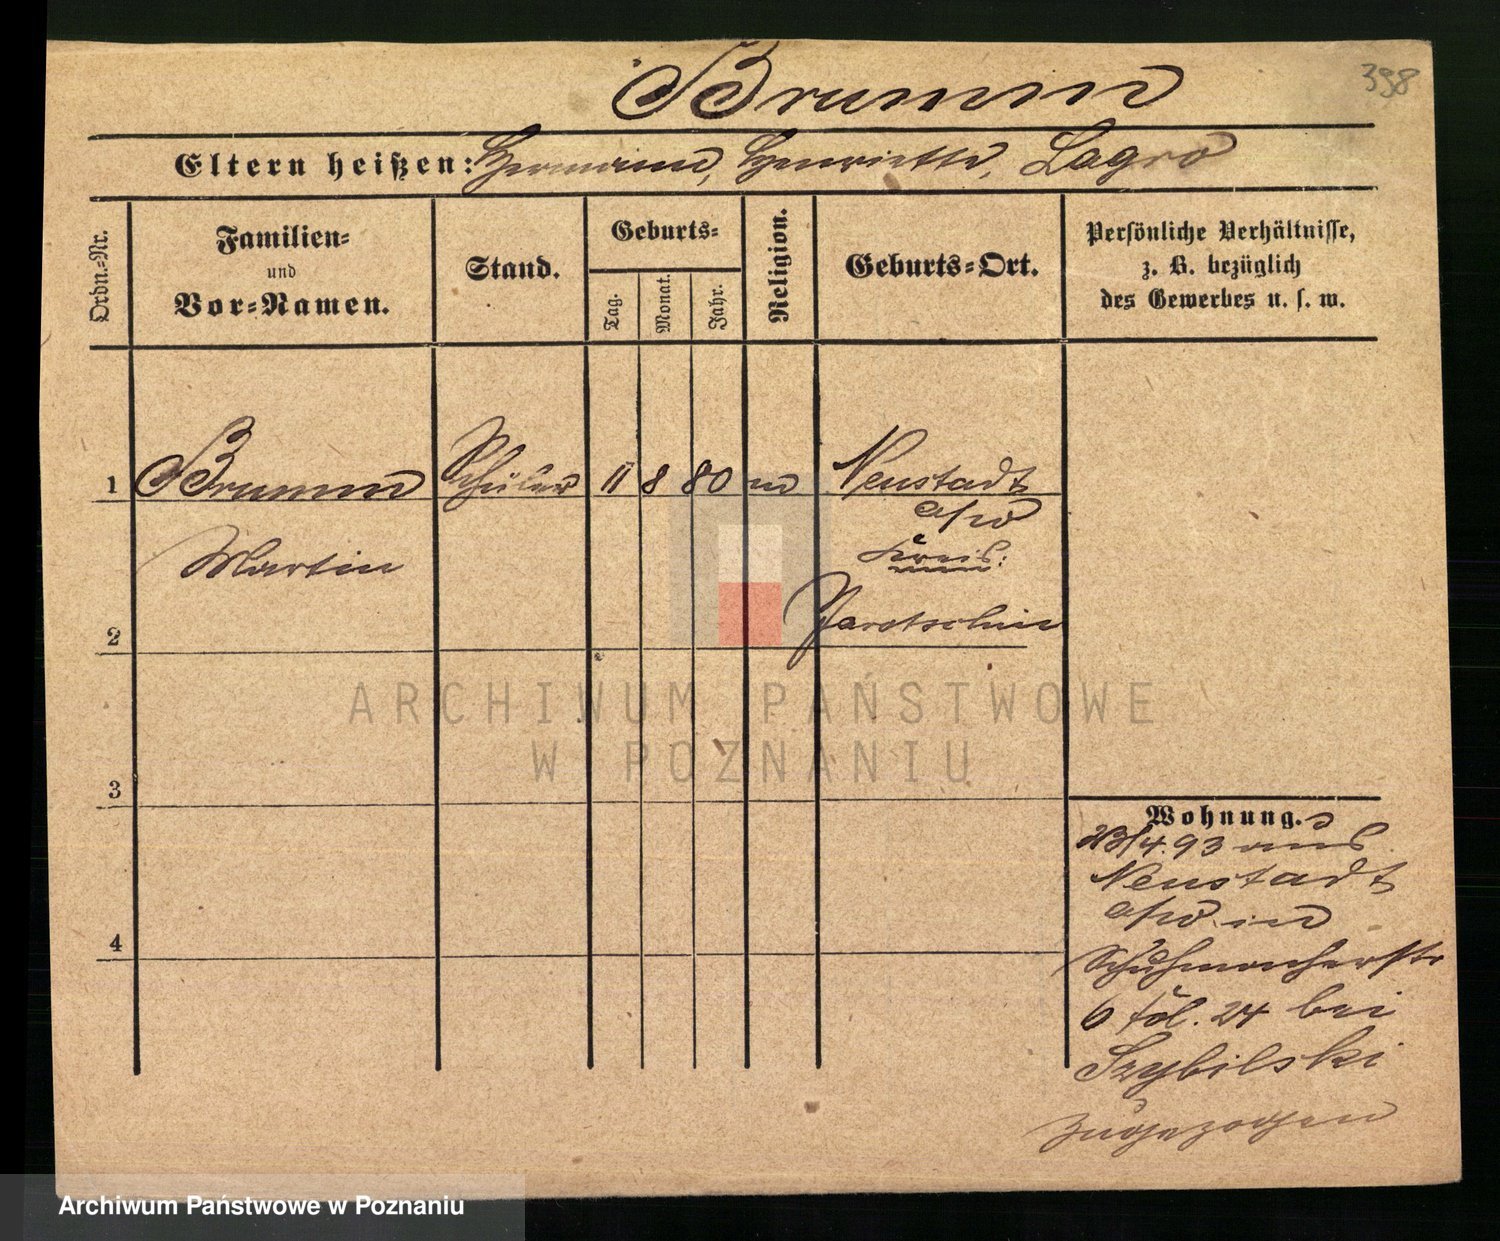 Brumm
398
Eltern heißen: Hermann, Henriette, Lagro
Ordn.-Nr.
Familien-
und
Vor-Namen.
Stand.
Geburts-
Tag.
Monat.
Jahr.
Religion.
Geburts-Ort.
Persönliche Verhältnisse,
z. B. bezüglich
des Gewerbes u. s. w.
1 Brumm Schüler 11 8 80 m Neustadt
a/w
Martin
Kreis:
Jarotschin
2
3
4
Wohnung.
23/4.93 aus
Neustadt
a/w in
Schuhmacherstr
6 föl. 24 bei
Szybilski
zugezogen
ARCHIWUM PAŃSTWOWE
W POZNANIU
Archiwum Państwowe w Poznaniu